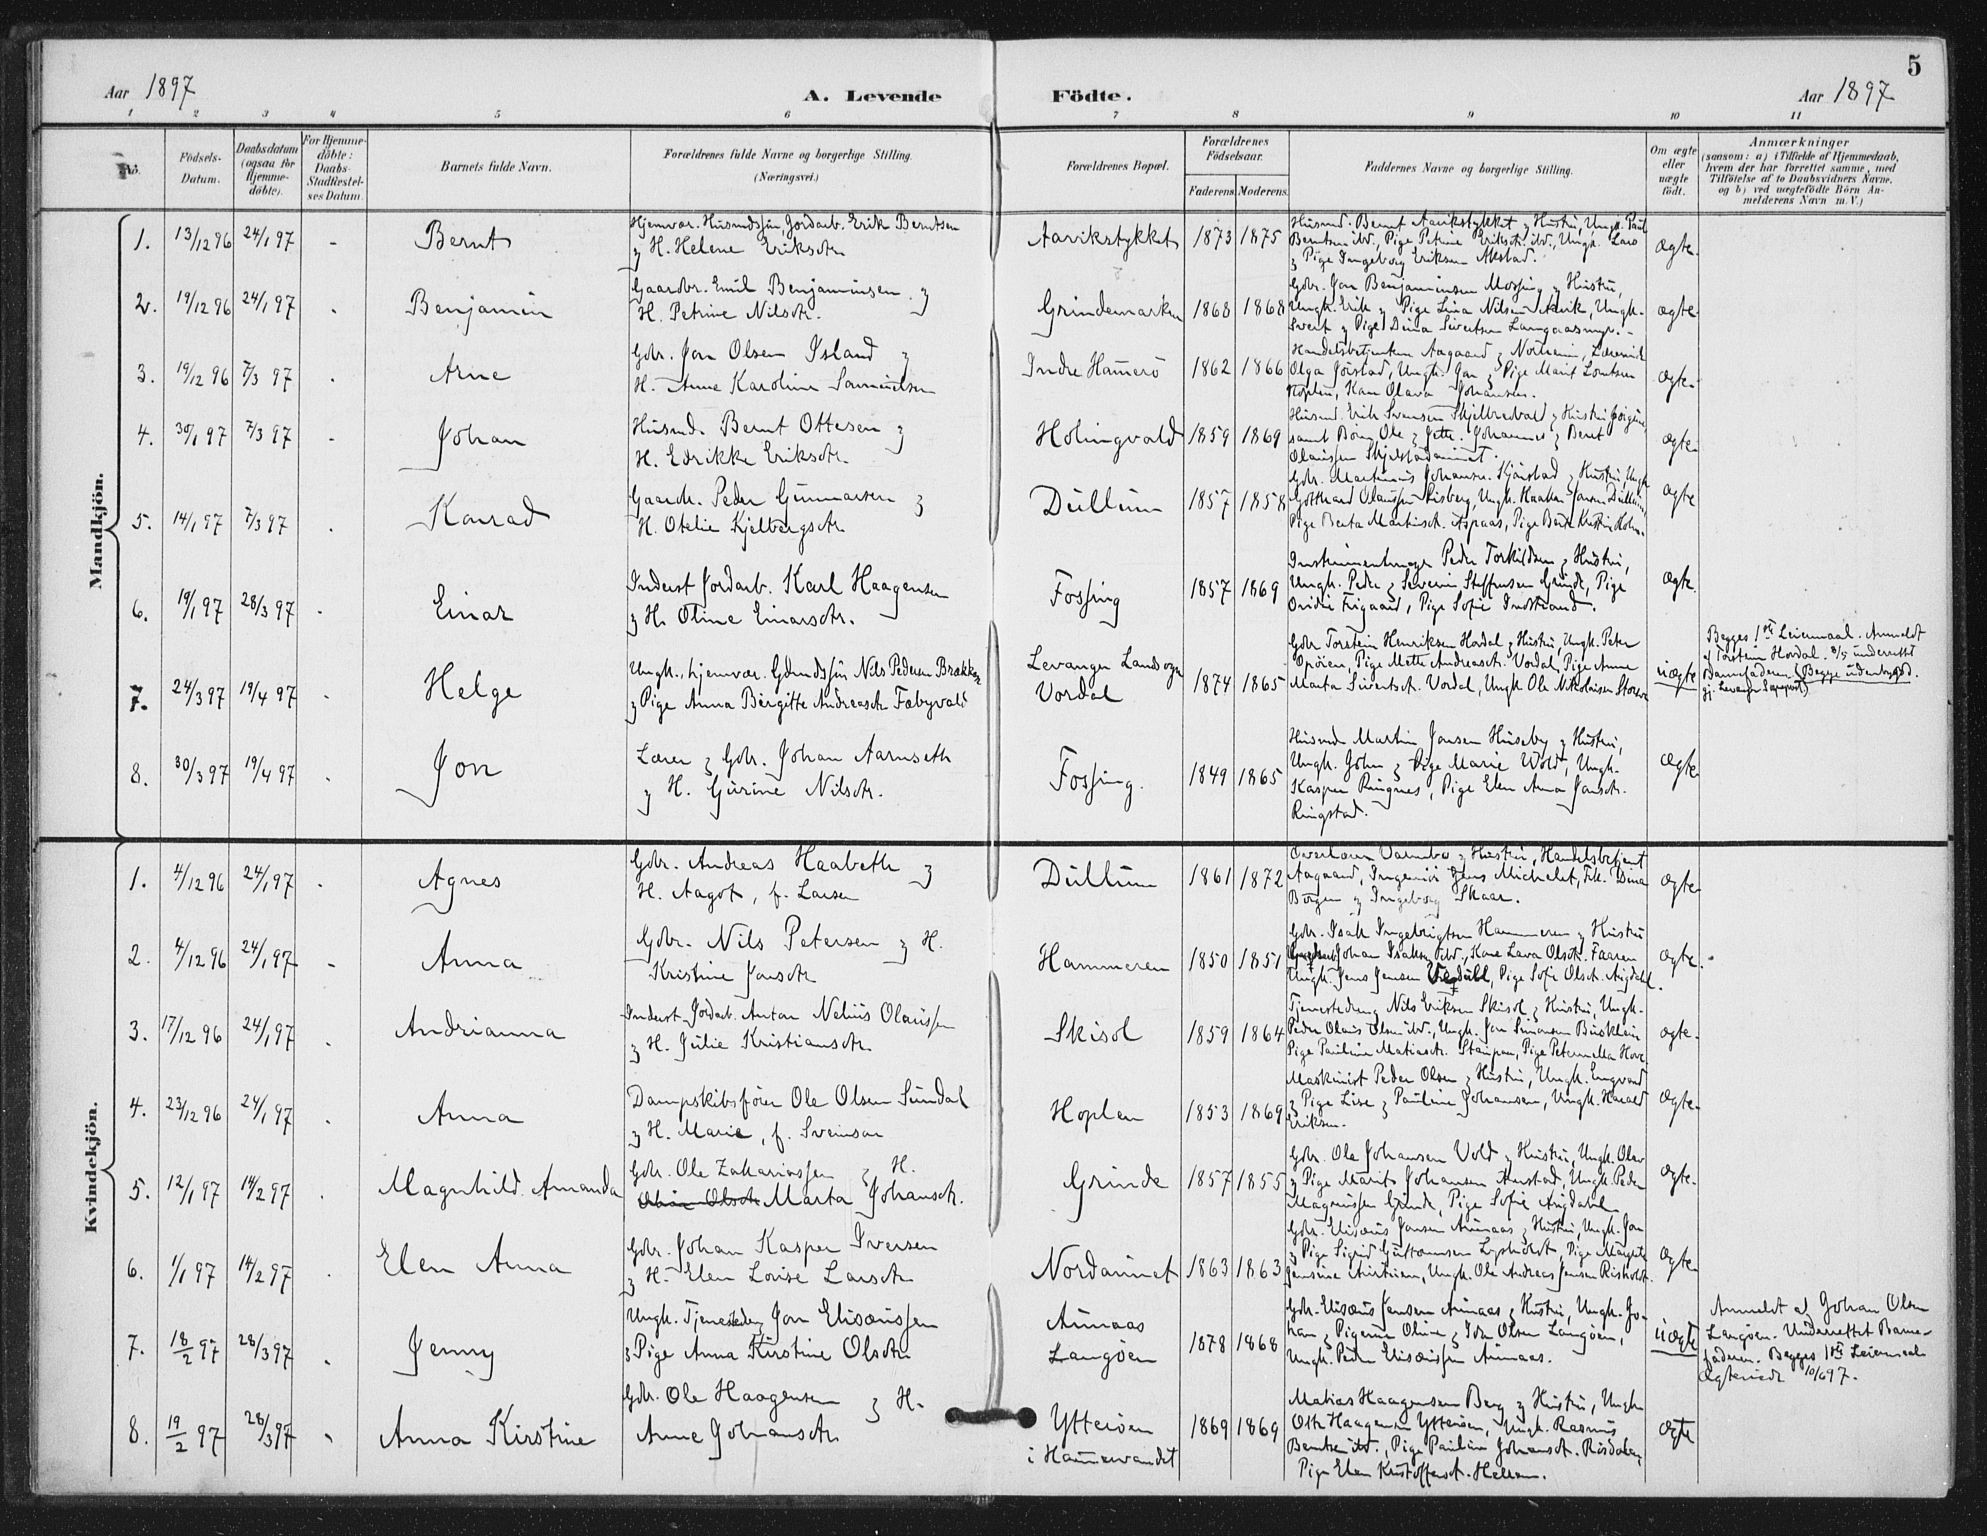 5
Aar 1897
A. Levende Födte.
Aar 1897
1 2 3 4 5 6 7 8 9 10 11
No.
Födsels-Datum.
Daabsdatum (ogsaa for Hjemme-döbte).
For Hjemme-döbte: Daabs-Stadfæstel-ses Datum.
Barnets fulde Navn.
Forældrenes fulde Navne og borgerlige Stilling.
(Næringsvei.)
Forældrenes Bopæl.
Forældrenes Födselsaar.
Faderens. Moderens.
Faddernes Navne og borgerlige Stilling.
Om ægte eller uægte födt.
Anmærkninger
(saasom: a) i Tilfælde af Hjemmedaab,
hvem der har forrettet samme, med
Tilföielse af to Daabsvidners Navne,
og b) ved uægtefödte Börn An-
melderens Navn m. V.)
Mandkjön.
1. 13/12 96 24/1 97 - Bernt
Hjemvær. Husmdssøn, Jordarb. Erik Berntsen
& H. Helene Eriksdtr.
Aarvikstykket 1873 1875
Husmd. Bernt Aarvikstykket & Hustru, Ungk. Paul
Berntsen ibd., Pige Petrine Eriksdt. ibd., Ungk. Lars
& Pige Ingeborg Eriksen
ægte
2. 19/12 96 24/1 97 Benjamin
Gaardbr. Emil Benjaminsen &
H. Petrine Nilsdtr.
Grindemarken 1868 1868
Gbr. Jon Benjaminsen Mossing & Hustru,
Ungk. Erik & Pige Lina Nilsen Ungk.
Sivert & Pige Dina Sivertsen
ægte
3. 19/12 96 7/3 97 Arne
Gbr. Jon Olsen Island &
H. Anne Karoline Samuelsen
Indre Hammerö 1862 1866
Handelsbetjentene Aagaard & Lærerinde
Olga Ungk. Jon & Pige Marit Lorntsen
Hoplen, Kone Olava Johansen.
ægte
4. 30/1 97 7/3 97 Johan
Husmd. Bernt Ottesen &
H. Edrikke Eriksdtr.
Holingvald 1859 1869
Husmd. Erik Svensen & Hustru
samt Børn Ole & Jette. Johannes & Beret
Olaussen
ægte
5. 14/1 97 7/3 97 Konrad
Gaardbr. Peder Gunnarsen &
H. Otelie Kjelbergsdtr.
Dullum 1857 1858
Gbr. Martinus Johansen & Hustru, Ungk.
Gotthard Olaussen Ungk. Haakon Dullum
Pige Berta Martinsdt. Aspaas, Pige Kristine Holm.
ægte
6. 19/1 97 28/3 97 Einar
Inderst Jordarb. Karl Haagensen
& H. Oline Einarsdtr.
Fossing 1857 1869
Instrumentmager Peder Torkildsen & Hustru,
Ungk. Peder & Severin Steffensen Grinde, Pige
Frigaard, Pige Sofie Indstrand.
ægte
7. 24/3 97 19/4 97 Helge
Ungk., hjemvær. Gdmdssøn Nils Pedersen Brækken
& Pige Anna Birgitte Andreasdtr. Fæbyvald
Levanger Landsogn
Vordal
1874 1865
Gbr. Torstein Henriksen Hordal & Hustru, Ungk. Peter
Opöien, Pige Mette Andreasdt. Vordal, Pige Anne
Marta Sivertsdt. Vordal, Ungk. Ole Nikolaisen
uægte
Begges 1ste Leiermaal. Anmeldt
af Torstein Hordal. 8/5 underrettet
Barnefaderen.
8. 30/3 97 19/4 97 Jon
Lærer & Gbr. Johan Aarnseth
& H. Gurine Nilsdtr.
Fossing. 1849 1865
Husmd Martin Jonsen Huseby & Hustru,
Ungk. John & Pige Marie Wold, Ungk.
Kasper Ringnes, Pige Elen Anna Jonsdt.
Ringstad.
ægte
Kvindekjön.
1. 4/12 96 24/1 97 Agnes
Gbr. Andreas Haabeth &
H. Aagot, f. Larsen
Dullum 1861 1872
& Hustru, Handelsbetjent
Aagaard, Ingeniör Jens Michelet, Frk. Dina
Borgen & Ingeborg Skaar.
ægte
2. 4/12 96 24/1 97 - Anna
Gbr. Nils Petersen & H.
Kristine Jonsdtr
Hammeren 1850 1851
Gbr. Isak Ingebrigtsen Hammeren & Hustru
Johan Isaksen ibd., Kone Lava Olsdt. Faaren
Ungk. Jens Jensen Pige Sofie Olsdt.
ægte
3. 17/12 96 24/1 97 Andrianna
Inderst Jordarb. Anton Nelius Olaussen
& H. Julie Kristiansdtr.
Skisol 1859 1864
Tjenestedreng Nils Eriksen Skisol & Hustru, Ungk.
Peder Olaus Olsen ibd., Ungk. Jon Simonsen
Pige Pauline Matiasdtr. Pige Peternella
ægte
4. 23/12 96 24/1 97 Anna
Dampskibsfører Ole Olsen Sundal
& H. Marie, f. Sveinson
Hoplen 1853 1869
Maskinist Peder Olsen & Hustru, Ungk. Engvard
& Pige Lise & Pauline Johansen, Ungk. Harald
Eriksen.
ægte
5. 12/1 97 14/2 97 Magnhild Amanda
Gbr. Ole Zakariassen & H.
Marta Johansdt.
Grinde 1857 1855
Gbr. Ole Johansen Vold & Hustru, Ungk. Olav
& Pige Marit Johansen Ungk. Peder
Magnussen Grinde, Pige Sofie
ægte
6. 1/1 97 14/2 97 Elen Anna
Gbr. Johan Kasper Iversen
& H. Elen Lovise Larsdtr
Nordaunet 1863 1863
Gbr. Elisæus Jensen Aunaas & Hustru, Ungk. Jon
& Pige Sigrid Pige Margrete
Ungk. Ole Andreas Jensen
ægte
7. 18/2 97 28/3 97 Jenny
Ungk. Tjenestedreng Jon Elisæussen
& Pige Anna Kirstine Olsdtr
Aunaas
Langöen
1878 1868
Gbr. Elisæus Jensen Aunaas & Hustru, Ungk. Jo-
han & Pigerne Oline & Ida Olsen Langöen,
Ungk. Peder Elisæussen Aunaas.
uægte
Anmeldt af Johan Olsen
Langöen. Underrettet Barne-
faderen. Begges 1ste Leiermaal.
10/6 97.
8. 19/2 97 28/3 97 Anna Kirstine
Gbr. Ole Haagensen & H.
Anne Johansdtr
Ytteröen
i Hammervandet
1869 1869
Matias Haagensen Berg & Hustru, Ungk.
Otto Haagensen Ytteröen, Ungk. Rasmus
Berntsen ibd., Pige Pauline Johansdt.
Pige Elen Kristoffersdt.
ægte